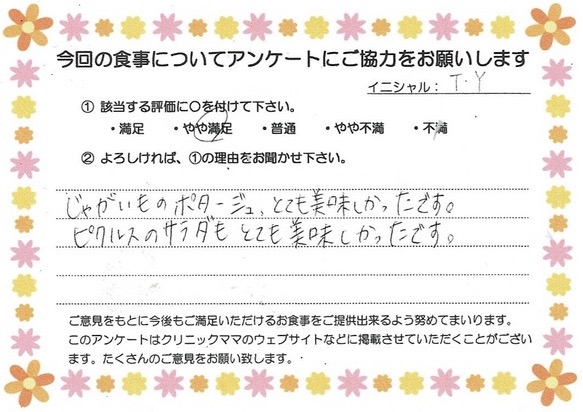 今回の食事についてアンケートにご協力をお願いします
イニシャル: T.Y
① 該当する評価に○を付けて下さい。
・満足 ・やや満足 ・普通 ・やや不満 ・不満
② よろしければ、①の理由をお聞かせ下さい。
じゃがいものポタージュ、とても美味しかったです。
ピクルスのサラダもとても美味しかったです。
ご意見をもとに今後もご満足いただけるお食事をご提供出来るよう努めてまいります。
このアンケートはクリニックママのウェブサイトなどに掲載させていただくことがござい
ます。たくさんのご意見をお願い致します。